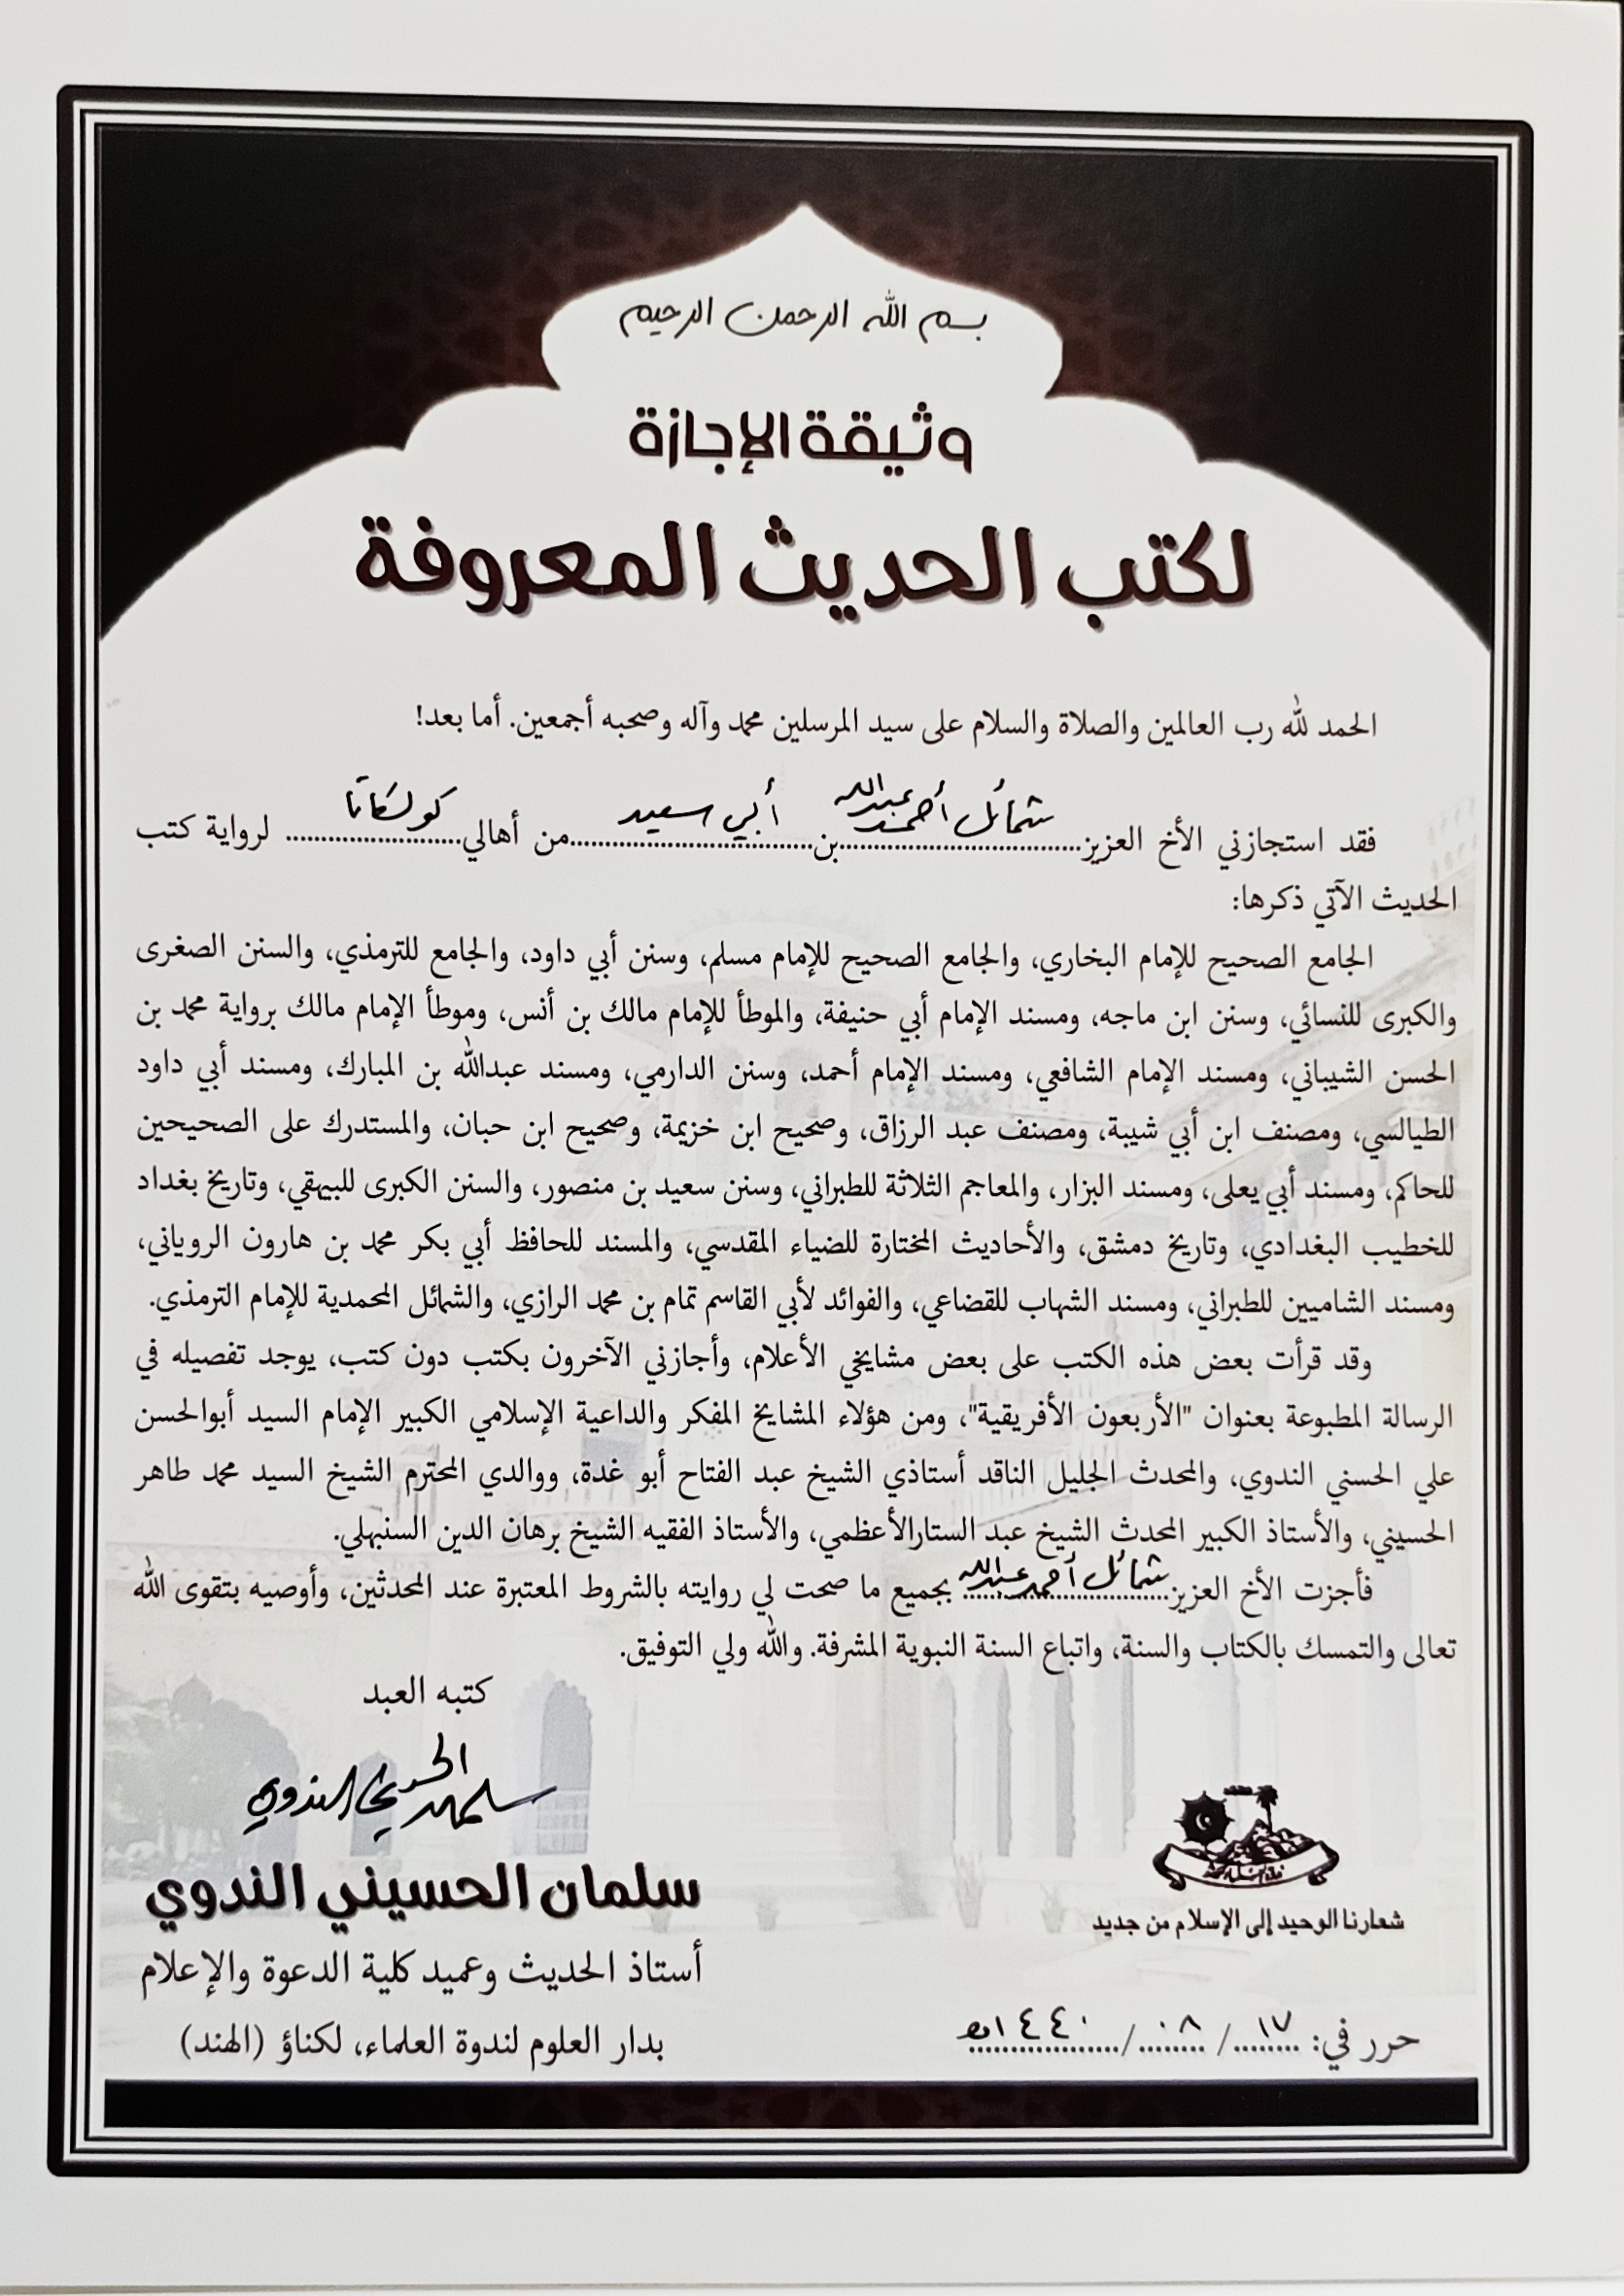 بسم الله الرحمن الرحيم
وثيقة الإجازة
لكتب الحديث المعروفة
الحمد لله رب العالمين والصلاة والسلام على سيد المرسلين محمد وآله وصحبه أجمعين. أما بعد!
فقد استجازني الأخ العزيز شمائل أحمد عبدالله بن أبي سعيد من أهالي كولكاتا لرواية كتب
الحديث الآتي ذكرها:
الجامع الصحيح للإمام البخاري، والجامع الصحيح للإمام مسلم، وسنن أبي داود، والجامع للترمذي، والسنن الصغرى
والكبرى للنسائي، وسنن ابن ماجه، ومسند الإمام أبي حنيفة، والموطأ للإمام مالك بن أنس، وموطأ الإمام مالك برواية محمد بن
الحسن الشيباني، ومسند الإمام الشافعي، ومسند الإمام أحمد، وسنن الدارمي، ومسند عبدالله بن المبارك، ومسند أبي داود
الطيالسي، ومصنف ابن أبي شيبة، ومصنف عبد الرزاق، وصحيح ابن خزيمة، وصحيح ابن حبان، والمستدرك على الصحيحين
للحاكم، ومسند أبي يعلى، ومسند البزار، والمعاجم الثلاثة للطبراني، وسنن سعيد بن منصور، والسنن الكبرى للبيهقي، وتاريخ بغداد
للخطيب البغدادي، وتاريخ دمشق، والأحاديث المختارة للضياء المقدسي، والمسند للحافظ أبي بكر محمد بن هارون الروياني،
ومسند الشاميين للطبراني، ومسند الشهاب للقضاعي، والفوائد لأبي القاسم تمام بن محمد الرازي، والشمائل المحمدية للإمام الترمذي.
وقد قرأت بعض هذه الكتب على بعض مشايخي الأعلام، وأجازني الآخرون بكتب دون كتب، يوجد تفصيله في
الرسالة المطبوعة بعنوان "الأربعون الأفريقية"، ومن هؤلاء المشايخ المفكر والداعية الإسلامي الكبير الإمام السيد أبوالحسن
علي الحسني الندوي، والمحدث الجليل الناقد أستاذي الشيخ عبد الفتاح أبو غدة، ووالدي المحترم الشيخ السيد محمد طاهر
الحسيني، والأستاذ الكبير المحدث الشيخ عبد الستارالأعظمي، والأستاذ الفقيه الشيخ برهان الدين السنبهلي.
فأجزت الأخ العزيز شمائل أحمد عبدالله بجميع ما صحت لي روايته بالشروط المعتبرة عند المحدثين، وأوصيه بتقوى الله
تعالى والتمسك بالكتاب والسنة، واتباع السنة النبوية المشرفة. والله ولي التوفيق.
كتبه العبد
سلمان الحسيني الندوي
سلمان الحسيني الندوي
أستاذ الحديث وعميد كلية الدعوة والإعلام
بدار العلوم لندوة العلماء، لكناؤ (الهند)
شعارنا الوحيد إلى الإسلام من جديد
حرر في: ١٧/ ٠٨/ ١٤٤٠هـ